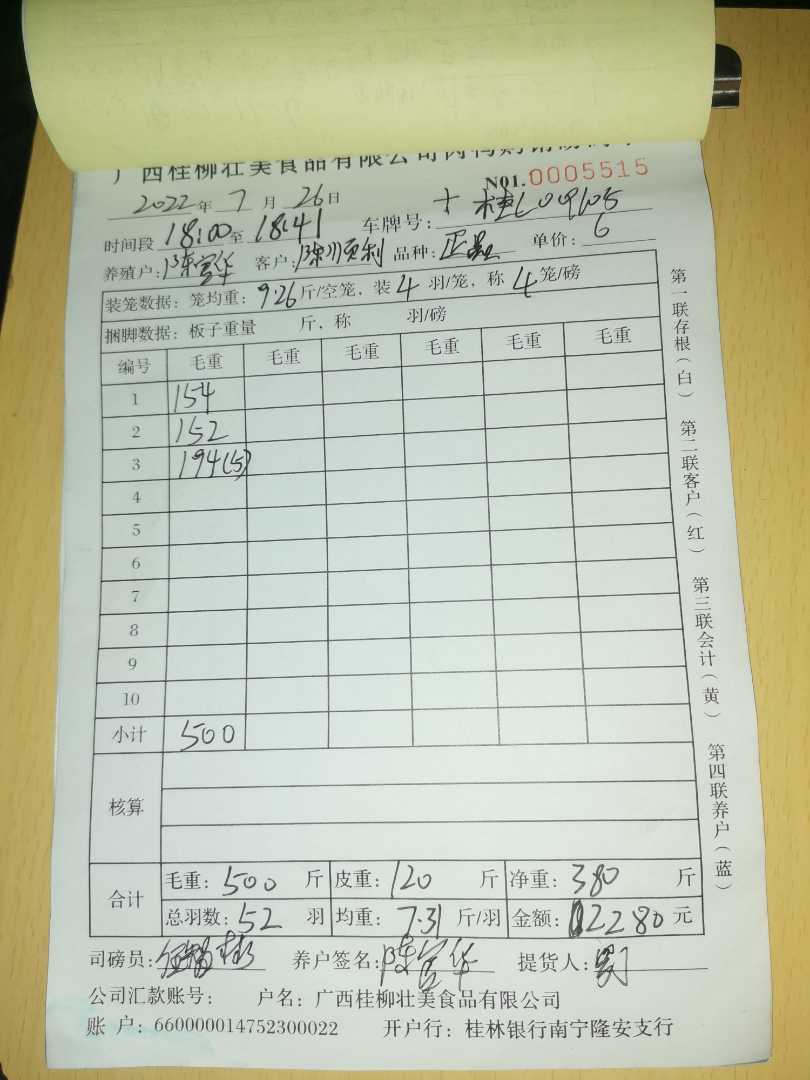 广西桂柳壮美食品有限公司肉鸭购销磅码单
N01.0005515
2022年 7 月 26日
时间段 18:00至 18:41 车牌号:
养殖户: 陈宣华 客户: 品种: 单价: 6
装笼数据: 笼均重: 9.26 斤/空笼, 装 4 羽/笼, 称 4 笼/磅
捆脚数据: 板子重量 斤, 称 羽/磅
编号 毛重 毛重 毛重 毛重 毛重 毛重
1 154
2 152
3 194(5)
4
5
6
7
8
9
10
小计 500
核算
合计 毛重: 500 斤 皮重: 120 斤 净重: 380 斤
总羽数: 52 羽 均重: 7.31 斤/羽 金额: 2280 元
司磅员: 养户签名: 陈宣华 提货人:
公司汇款账号: 户名: 广西桂柳壮美食品有限公司
账 户: 660000014752300022 开户行: 桂林银行南宁隆安支行
第一联存根(白) 第二联客户(红) 第三联会计(黄) 第四联养户(蓝)